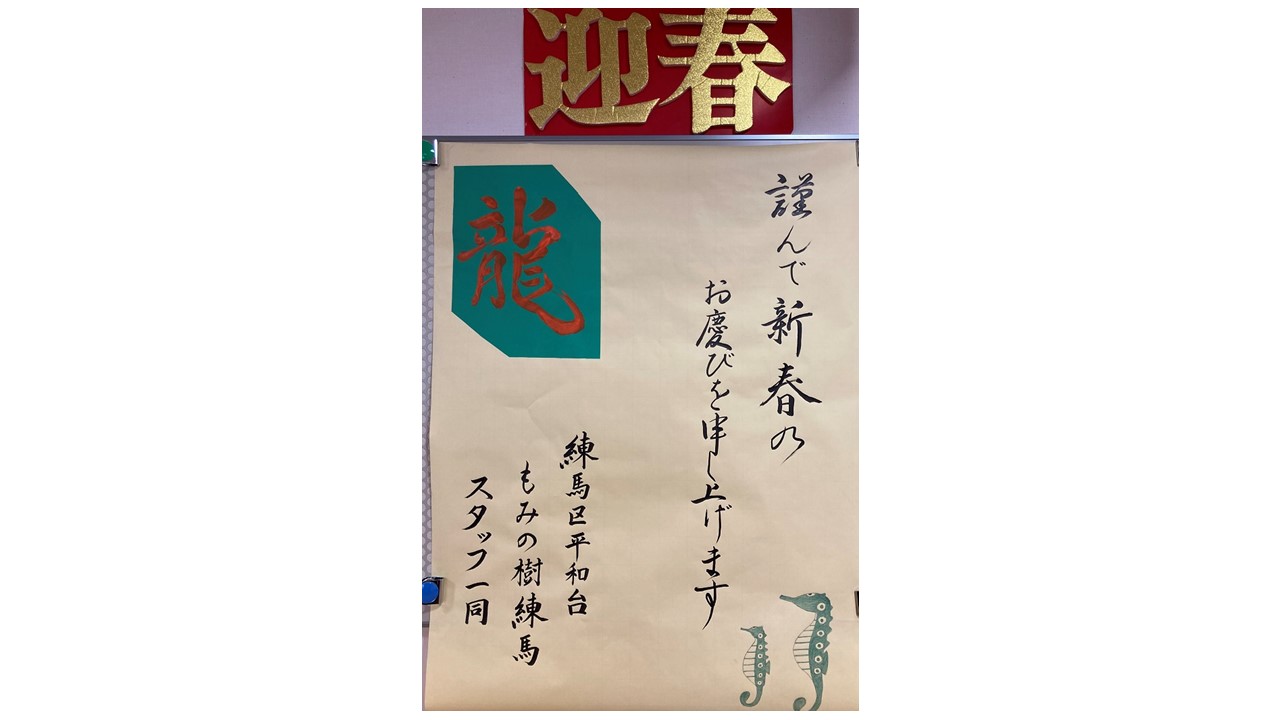 迎春
謹んで新春の
お慶びを申し上げます
龍
練馬区平和台
もみの樹練馬
スタッフ一同